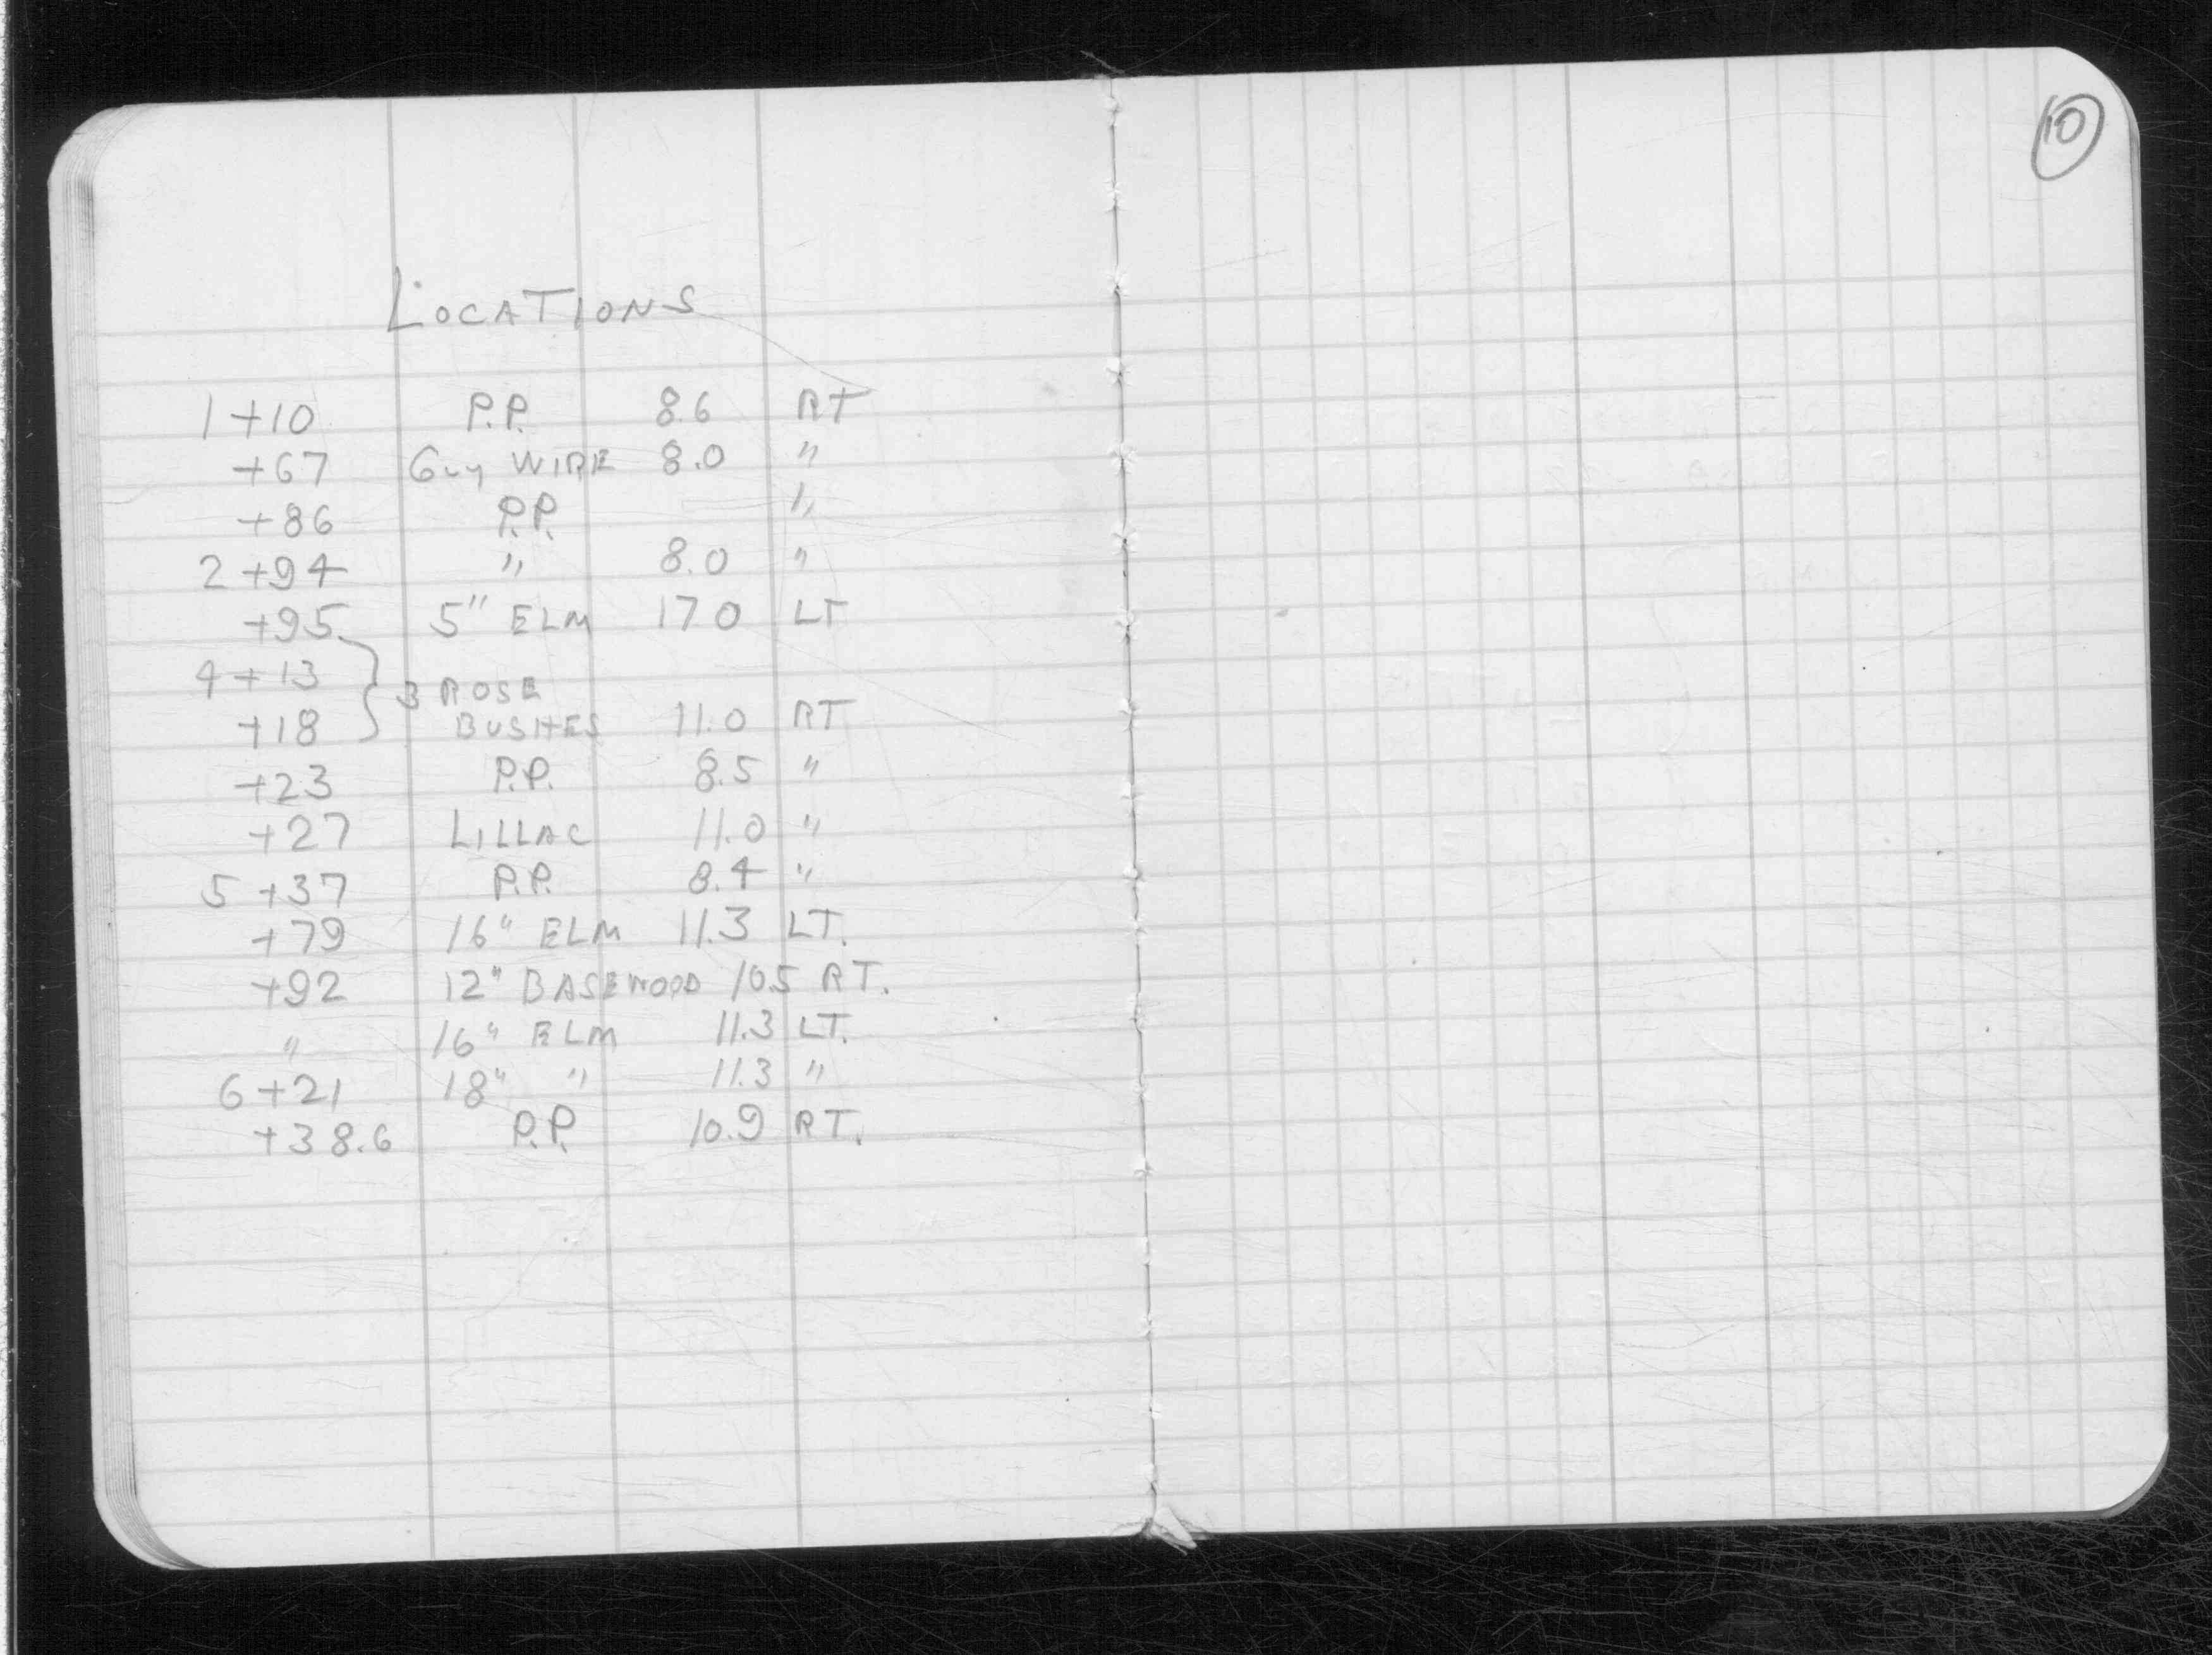 LOCATIONS
1+10 P.P. 8.6 RT
+67 Guy WIRE 8.0 "
+86 P.P. "
2+94 " 8.0 "
+95 5" ELM 17.0 LT
4+13
3 ROSE
+18 BUSHES 11.0 RT
+23 P.P. 8.5 "
+27 LILLAC 11.0 "
5+37 P.P. 8.4 "
+79 16" ELM 11.3 LT.
+92 12" BASEWOOD 10.5 RT.
" 16" ELM 11.3 LT.
6+21 18" " 11.3 "
+38.6 P.P. 10.9 RT.
10